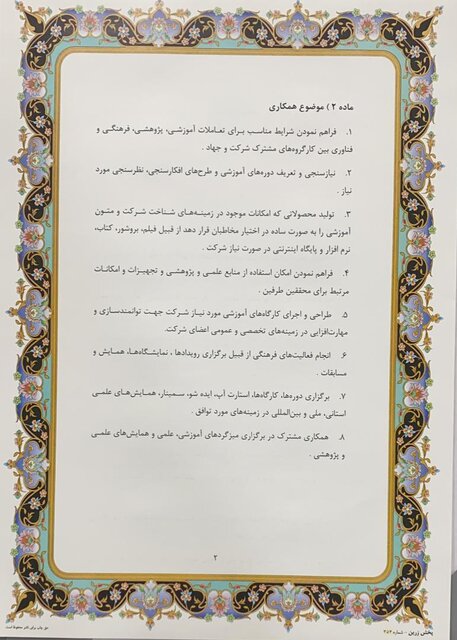 ماده ۲ ) موضوع همکاری
۱. فراهم نمودن شرایط مناسب برای تعاملات آموزشی، پژوهشی، فرهنگی و
فناوری بین کارگروه‌های مشترک شرکت و جهاد .
۲. نیازسنجی و تعریف دوره‌های آموزشی و طرح‌های افکارسنجی، نظرسنجی مورد
نیاز .
۳. تولید محصولاتی که امکانات موجود در زمینه‌های شناخت شرکت و متون
آموزشی را به صورت ساده در اختیار مخاطبان قرار دهد از قبیل فیلم، بروشور، کتاب،
نرم افزار و پایگاه اینترنتی در صورت نیاز شرکت .
۴. فراهم نمودن امکان استفاده از منابع علمی و پژوهشی و تجهیزات و امکانات
مرتبط برای محققین طرفین .
۵. طراحی و اجرای کارگاه‌های آموزشی مورد نیاز شرکت جهت توانمندسازی و
مهارت‌افزایی در زمینه‌های تخصصی و عمومی اعضای شرکت.
۶. انجام فعالیت‌های فرهنگی از قبیل برگزاری رویدادها ، نمایشگاه‌ها، همایش و
مسابقات .
۷. برگزاری دوره‌ها، کارگاه‌ها، استارت آپ، ایده شو، سمینار، همایش‌های علمی
استانی، ملی و بین‌المللی در زمینه‌های مورد توافق .
۸. همکاری مشترک در برگزاری میزگردهای آموزشی، علمی و همایش‌های علمی
و پژوهشی .
۲
پخش زرین - شماره ۳۵۲
حق چاپ برای ناشر محفوظ است